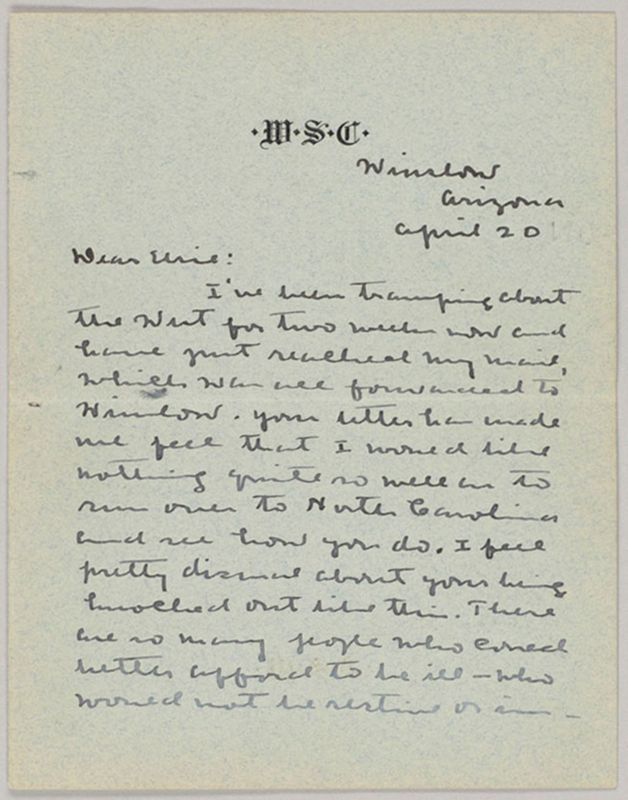 ·W·S·C·
Winslow
Arizona
April 20
Dear Elsie:
I've been tramping about
the West for two weeks now and
have just reached my mail,
which was all forwarded to
Winslow. your letter has made
me feel that I would like
nothing quite so well as to
run over to North Carolina
and see how you do. I feel
pretty dismal about your being
knocked out like this. There
are so many people who could
better afford to be ill – who
would not be restive or im-